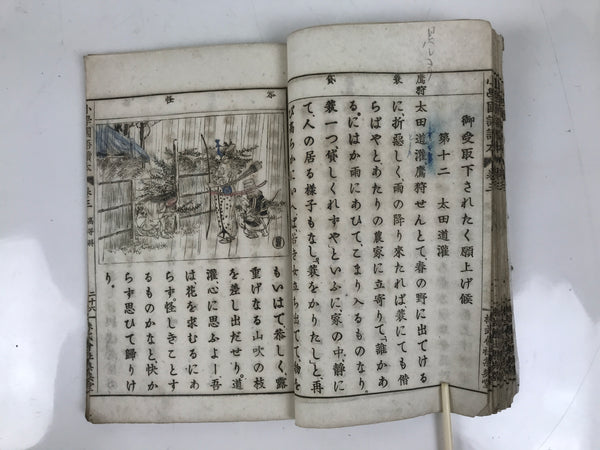 御受取下されたく願上げ候
第十二　太田道灌
太田道灌鷹狩せんとて、春の野に出でける
に折惡しく、雨の降り來たれば、蓑にても借
らばやと、あたりの農家に立寄りて、「誰かあ
る。にはか雨にあひて、こまり入るものなり。
蓑一つ、貸しくれずや」といふに、家の中、靜に
て、人の居る樣子もなし。「蓑をかりたし」と、再
もいはで、恭しく、露
重げなる山吹の枝
を差し出だせり。道
灌心に思ふよー吾
は花を求むるにあ
らず。怪しきことす
るものかなと、快か
らず思ひて歸りけ
り。
鷹狩
蓑
貸
怪
小學國語讀本　卷三　高等科
二十六